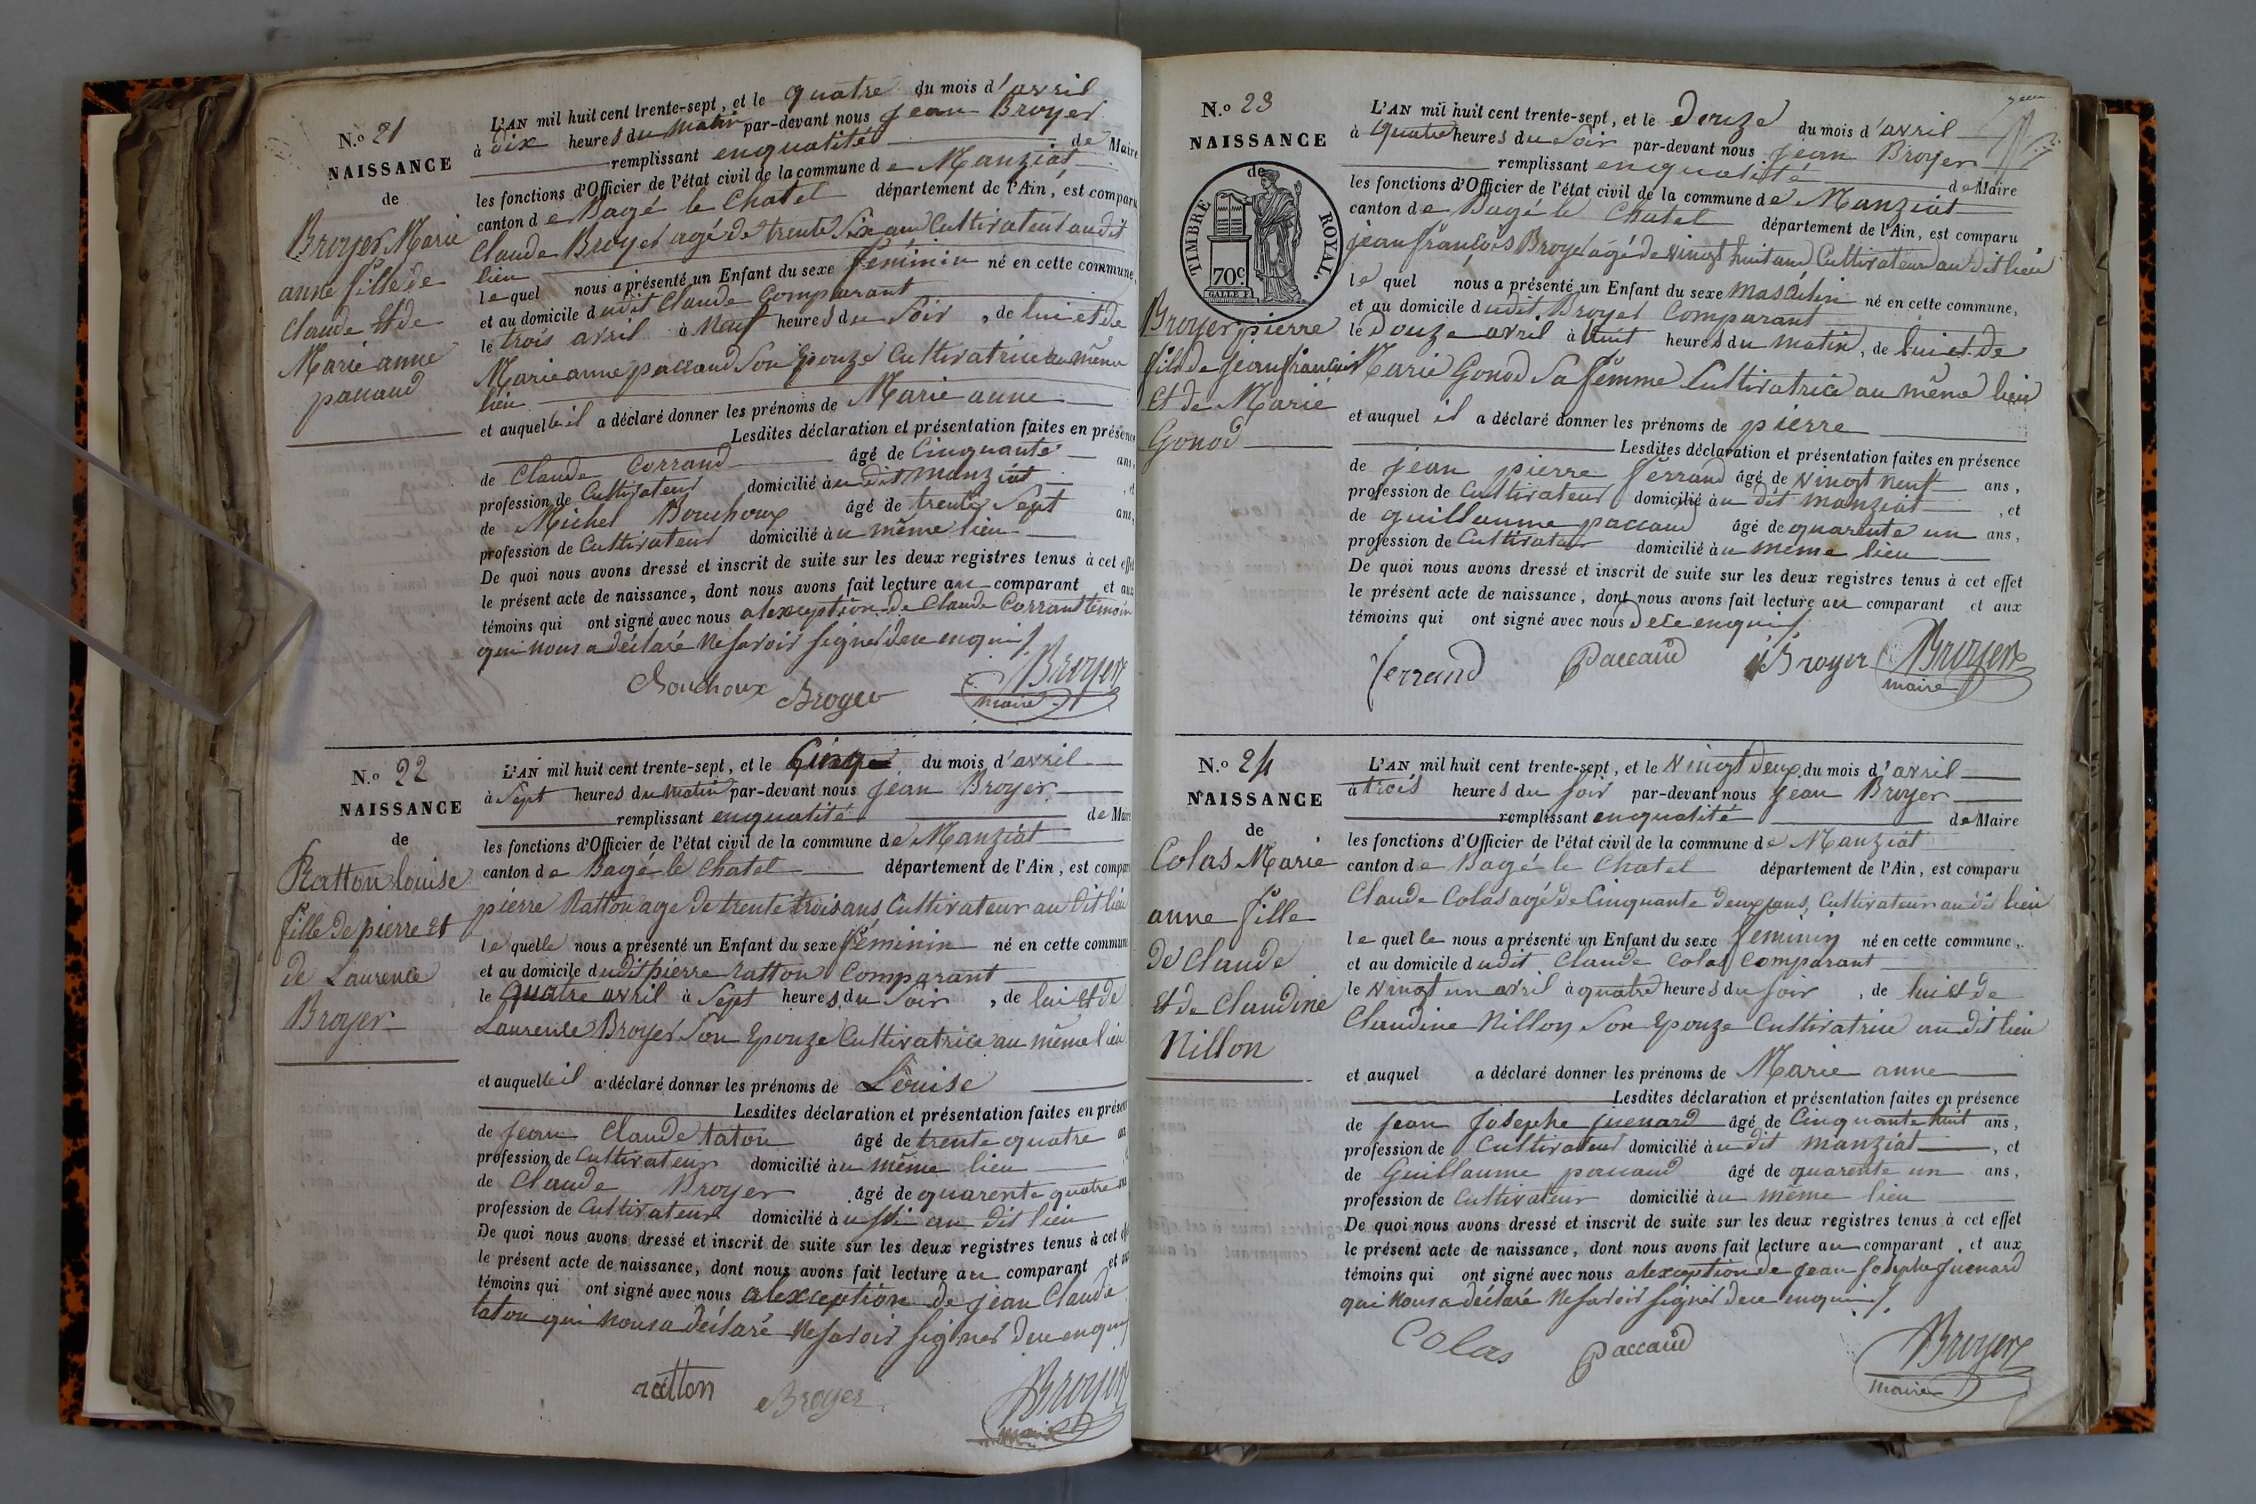 N.o 21
NAISSANCE
de
Broyer Marie
anne fille de
Claude et de
Marie anne
paccaud
L'AN mil huit cent trente-sept, et le quatre du mois d'avril
à dix heures du matin par-devant nous jean Broyer
remplissant en qualité de Maire
les fonctions d'Officier de l'état civil de la commune de Manziat
canton de Bagé le Chatel département de l'Ain, est comparu
Claude Broyer agé de trente Six ans Cultivateur au dit
lieu
lequel nous a présenté un Enfant du sexe féminin né en cette commune,
et au domicile dudit Claude Comparant
le trois avril à Neuf heures du Soir, de lui et de
Marie anne paccaud Son Epouze Cultivatrice au même
lieu
et auquelle il a déclaré donner les prénoms de Marie anne
Lesdites déclaration et présentation faites en présence
de Claude Corrand âgé de Cinquante ans,
profession de Cultivateur domicilié àu dit Manziat, et
de Michel Bouchoux âgé de trente Sept ans,
profession de Cultivateur domicilié àu même lieu
De quoi nous avons dressé et inscrit de suite sur les deux registres tenus à cet effet
le présent acte de naissance, dont nous avons fait lecture au comparant et aux
témoins qui ont signé avec nous alexception de Claude Corrant témoin
qui nous a déclaré ne savoir signer de ce enquis
Bouchoux Broyer Broyer
maire
N.o 22
NAISSANCE
de
Ratton louise
fille de pierre et
de Laurence
Broyer
L'AN mil huit cent trente-sept, et le Cinq du mois d'avril
à Sept heures du matin par-devant nous jean Broyer
remplissant en qualité de Maire
les fonctions d'Officier de l'état civil de la commune de Manziat
canton de Bagé le Chatel département de l'Ain, est comparu
pierre Ratton age de trente trois ans Cultivateur au Dit lieu
le quelle nous a présenté un Enfant du sexe féminin né en cette commune
et au domicile dudit pierre ratton Comparant
le quatre avril à Sept heures du Soir, de lui et de
Laurence Broyer Son Epouze Cultivatrice au même lieu
et auquelle il a déclaré donner les prénoms de Louise
Lesdites déclaration et présentation faites en présence
de jean Claude taton âgé de trente quatre ans
profession de Cultivateur domicilié àu même lieu
de Claude Broyer âgé de quarente quatre ans
profession de Cultivateur domicilié àussi au dit lieu
De quoi nous avons dressé et inscrit de suite sur les deux registres tenus à cet effet
le présent acte de naissance, dont nous avons fait lecture au comparant et aux
témoins qui ont signé avec nous alexception de jean Claude
taton qui nous a déclaré ne savoir signer de ce enquis
ratton Broyer Broyer
maire
N.o 23
NAISSANCE
de
TIMBRE ROYAL.
70c
Broyer pierre
fils de jean françois
et de Marie
Gonod
L'AN mil huit cent trente-sept, et le Douze du mois d'avril
à quatre heures du Soir par-devant nous jean Broyer
remplissant en qualité de Maire
les fonctions d'Officier de l'état civil de la commune de Manziat
canton de Bagé le Chatel département de l'Ain, est comparu
jean françois Broyer âgé de vingt huit ans Cultivateur au Dit lieu
le quel nous a présenté un Enfant du sexe masculin né en cette commune,
et au domicile dudit Broyer Comparant
le Douze avril à huit heures du matin, de lui et de
Marie Gonod Sa femme Cultivatrice au même lieu
et auquel il a déclaré donner les prénoms de pierre
Lesdites déclaration et présentation faites en présence
de jean pierre ferrand âgé de vingt neuf ans,
profession de Cultivateur domicilié àu dit manziat, et
de guillaume paccaud âgé de quarente un ans,
profession de Cultivateur domicilié àu meme lieu
De quoi nous avons dressé et inscrit de suite sur les deux registres tenus à cet effet
le présent acte de naissance, dont nous avons fait lecture au comparant et aux
témoins qui ont signé avec nous De ce enquis
ferrand Paccaud Broyer Broyer
maire
N.o 24
NAISSANCE
de
Colas Marie
anne fille
de Claude
et de Claudine
Nillon
L'AN mil huit cent trente-sept, et le vingt deux du mois d'avril
à trois heures du soir par-devant nous jean Broyer
remplissant en qualité de Maire
les fonctions d'Officier de l'état civil de la commune de Manziat
canton de Bagé le Chatel département de l'Ain, est comparu
Claude Colas agé de Cinquante Deux ans, Cultivateur au dit lieu
le quelle nous a présenté un Enfant du sexe féminin né en cette commune,
et au domicile dudit Claude Colas Comparant
le vingt un avril à quatre heures du soir, de lui et de
Claudine Nillon Son Epouze Cultivatrice au dit lieu
et auquel a déclaré donner les prénoms de Marie anne
Lesdites déclaration et présentation faites en présence
de jean josephe juenard âgé de Cinquante huit ans,
profession de Cultivateur domicilié àu dit manziat, et
de Guillaume paccaud âgé de quarente un ans,
profession de Cultivateur domicilié àu même lieu
De quoi nous avons dressé et inscrit de suite sur les deux registres tenus à cet effet
le présent acte de naissance, dont nous avons fait lecture au comparant, et aux
témoins qui ont signé avec nous alexception de jean josephe juenard
qui nous a déclaré ne savoir signer de ce enquis
Colas Paccaud Broyer
maire